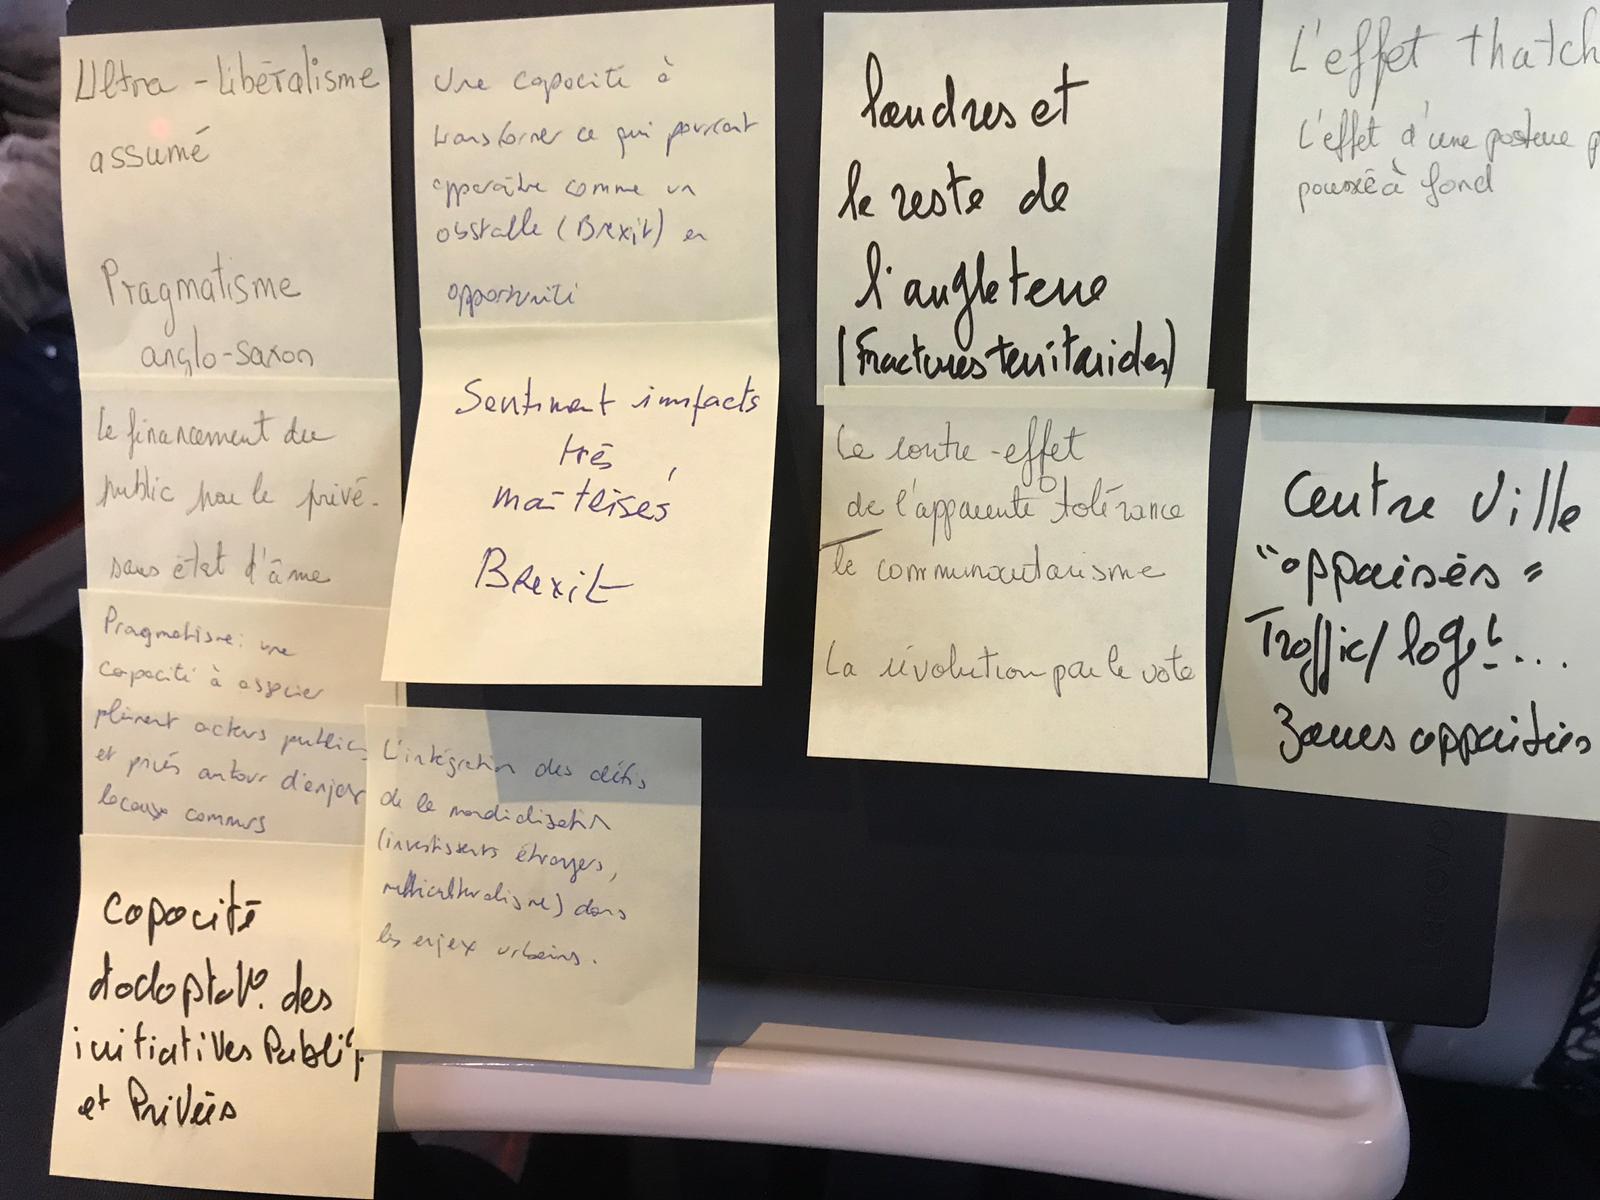 Ultra-libéralisme
assumé
Pragmatisme
anglo-saxon
Le financement du
public par le privé.
sans état d'âme
Pragmatisme: une
capacité à associer
acteurs publics
et privés autour d'enjeux
locaux communs
Capacité
d'adaptat°. des
initiatives Publiq.
et Privées
Une capacité à
transformer ce qui pourrait
apparaître comme un
obstacle (Brexit) en
opportunité
Sentiment impacts
très
maîtrisés
Brexit
L'intégration des défis
de la mondialisation
(investisseurs étrangers,
multiculturalisme) dans
les enjeux urbains.
Londres et
le reste de
l'angleterre
(Fractures territoriales)
Le contre-effet
de l'apparente tolérance
le communautarisme
La révolution par le vote
L'effet thatch
L'effet d'une posture p
poussée à fond
Centre Ville
"appaisés"
Traffic/logt...
Zones appaisées
LENOVO